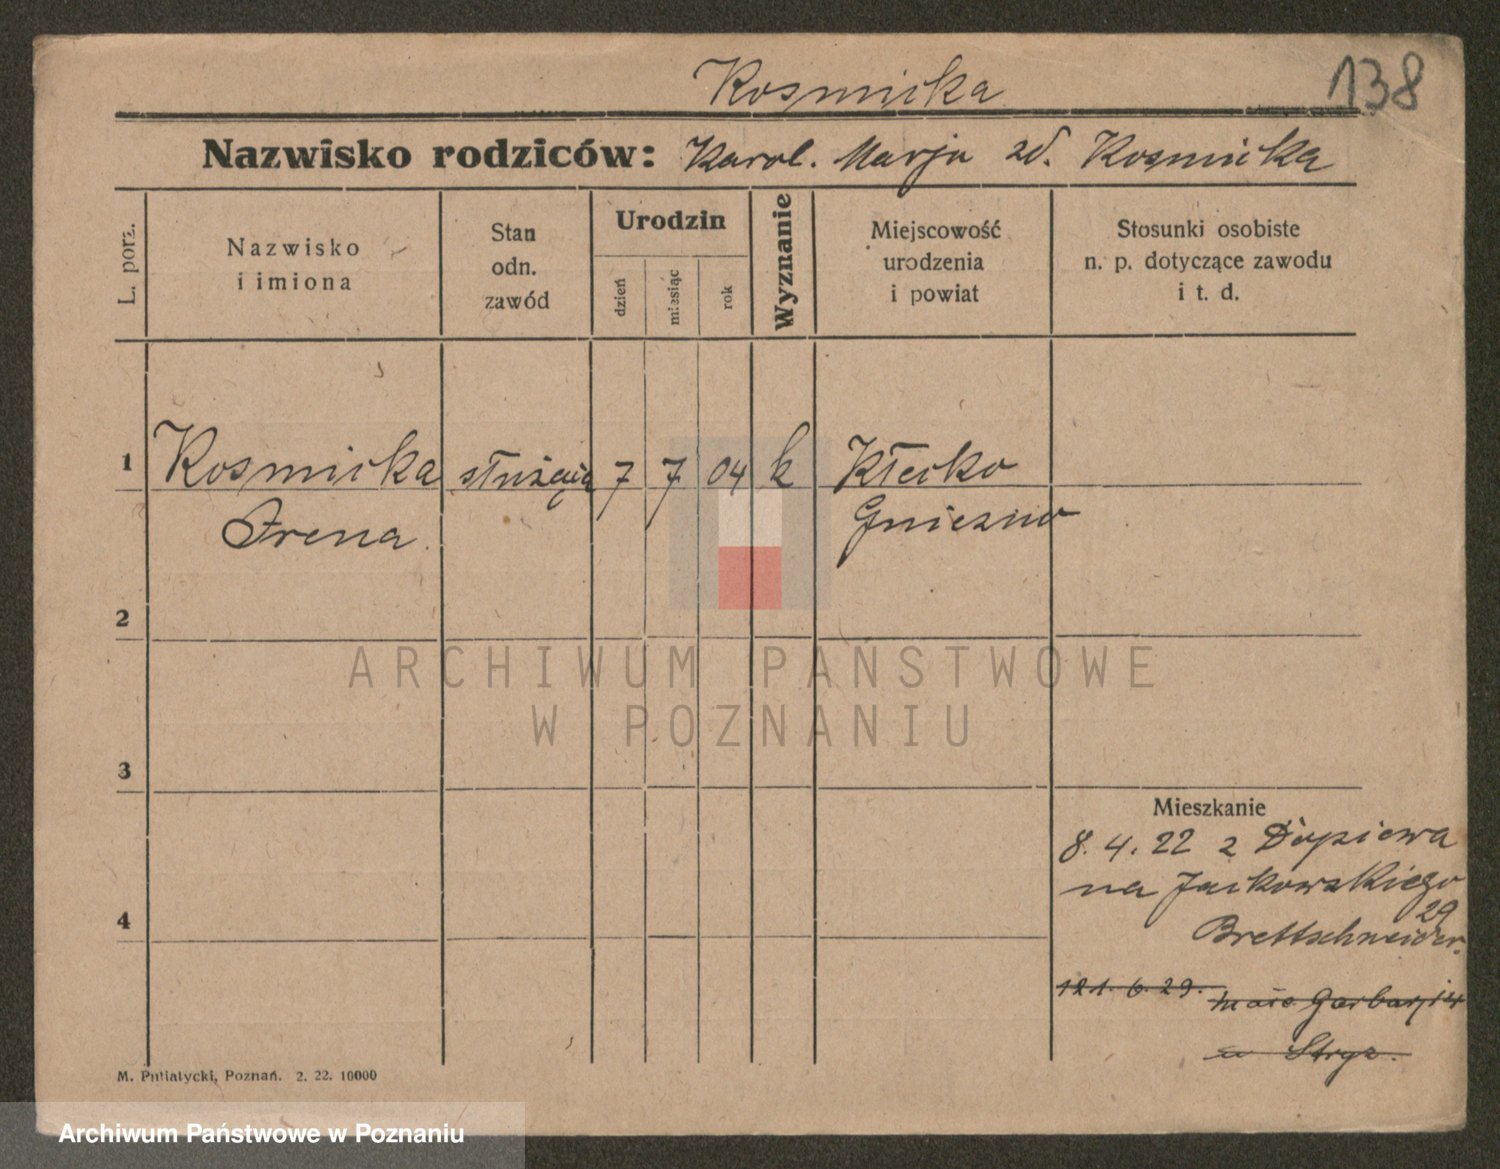 Kosmicka
138
Nazwisko rodziców: Karol. Marja zd. Kosmicka
L. porz.
Nazwisko
i imiona
Stan
odn.
zawód
Urodzin
dzień
miesiąc
rok
Wyznanie
Miejscowość
urodzenia
i powiat
Stosunki osobiste
n. p. dotyczące zawodu
i t. d.
1 Kosmicka służąca 7 7 04 k Kłecko
Irena Gniezno
2
3
4
Mieszkanie
8. 4. 22 z Dopiewa
na Jackowskiego
29
Brettschneider.
6. 29. Garbary 14
Stryz.
M. Putiatycki, Poznań. 2. 22. 10000
ARCHIWUM PAŃSTWOWE
W POZNANIU
Archiwum Państwowe w Poznaniu